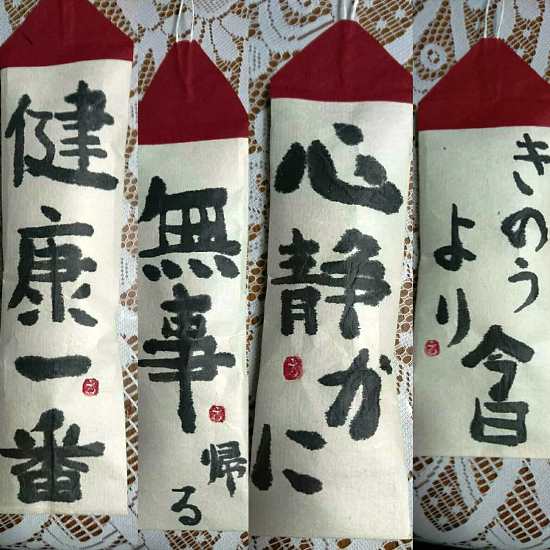 健康一番
無事
帰る
心静かに
きのう
より
今日